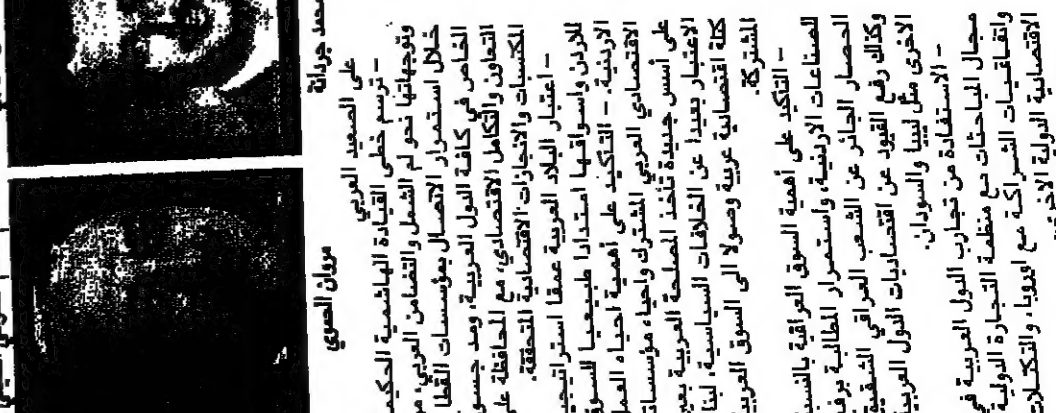 محمد جردانة
مروان الحموي
على الصعيد العربي
- ترسم خطى القيادة الهاشمية الحكيم
وتوجهاتها نحو لم الشمل والتضامن العربي، من
خلال استمرار الاتصال بمؤسسات القطا
الخاص في كافة الدول العربية، ومد جسو
التعاون والتكامل الاقتصادي، مع المحافظة على
المكتسبات والانجازات الاقتصادية المتحققة.
- اعتبار البلاد العربية عمقا استراتيجي
للاردن واسواقها امتدادا طبيعيا للسوق
الاردنية. - التاكيد على أهمية احياء العمل
الاقتصادي العربي المشترك واحياء مؤسسات
على أسس جديدة تأخذ المصلحة العربية بعين
الاعتبار بعيدا عن الخلافات السياسية، لبنا
كتلة اقتصادية عربية وصولا الى السوق العربية
المشتركة.
- التاكيد على أهمية السوق العراقية بالنسب
للصناعات الاردنية، واستمرار المطالبة برف
الحصار الجائر عن الشعب العراقي الشقيق
وكذلك رفع القيود عن اقتصاديات الدول العربي
الاخرى مثل ليبيا والسودان.
- الاستفادة من تجارب الدول العربية في
مجال المباحثات مع منظمة التجارة الدولية
واتفاقيات الشراكة مع اوروبا، والتكتلات
الاقتصادية الدولية الاخرى.